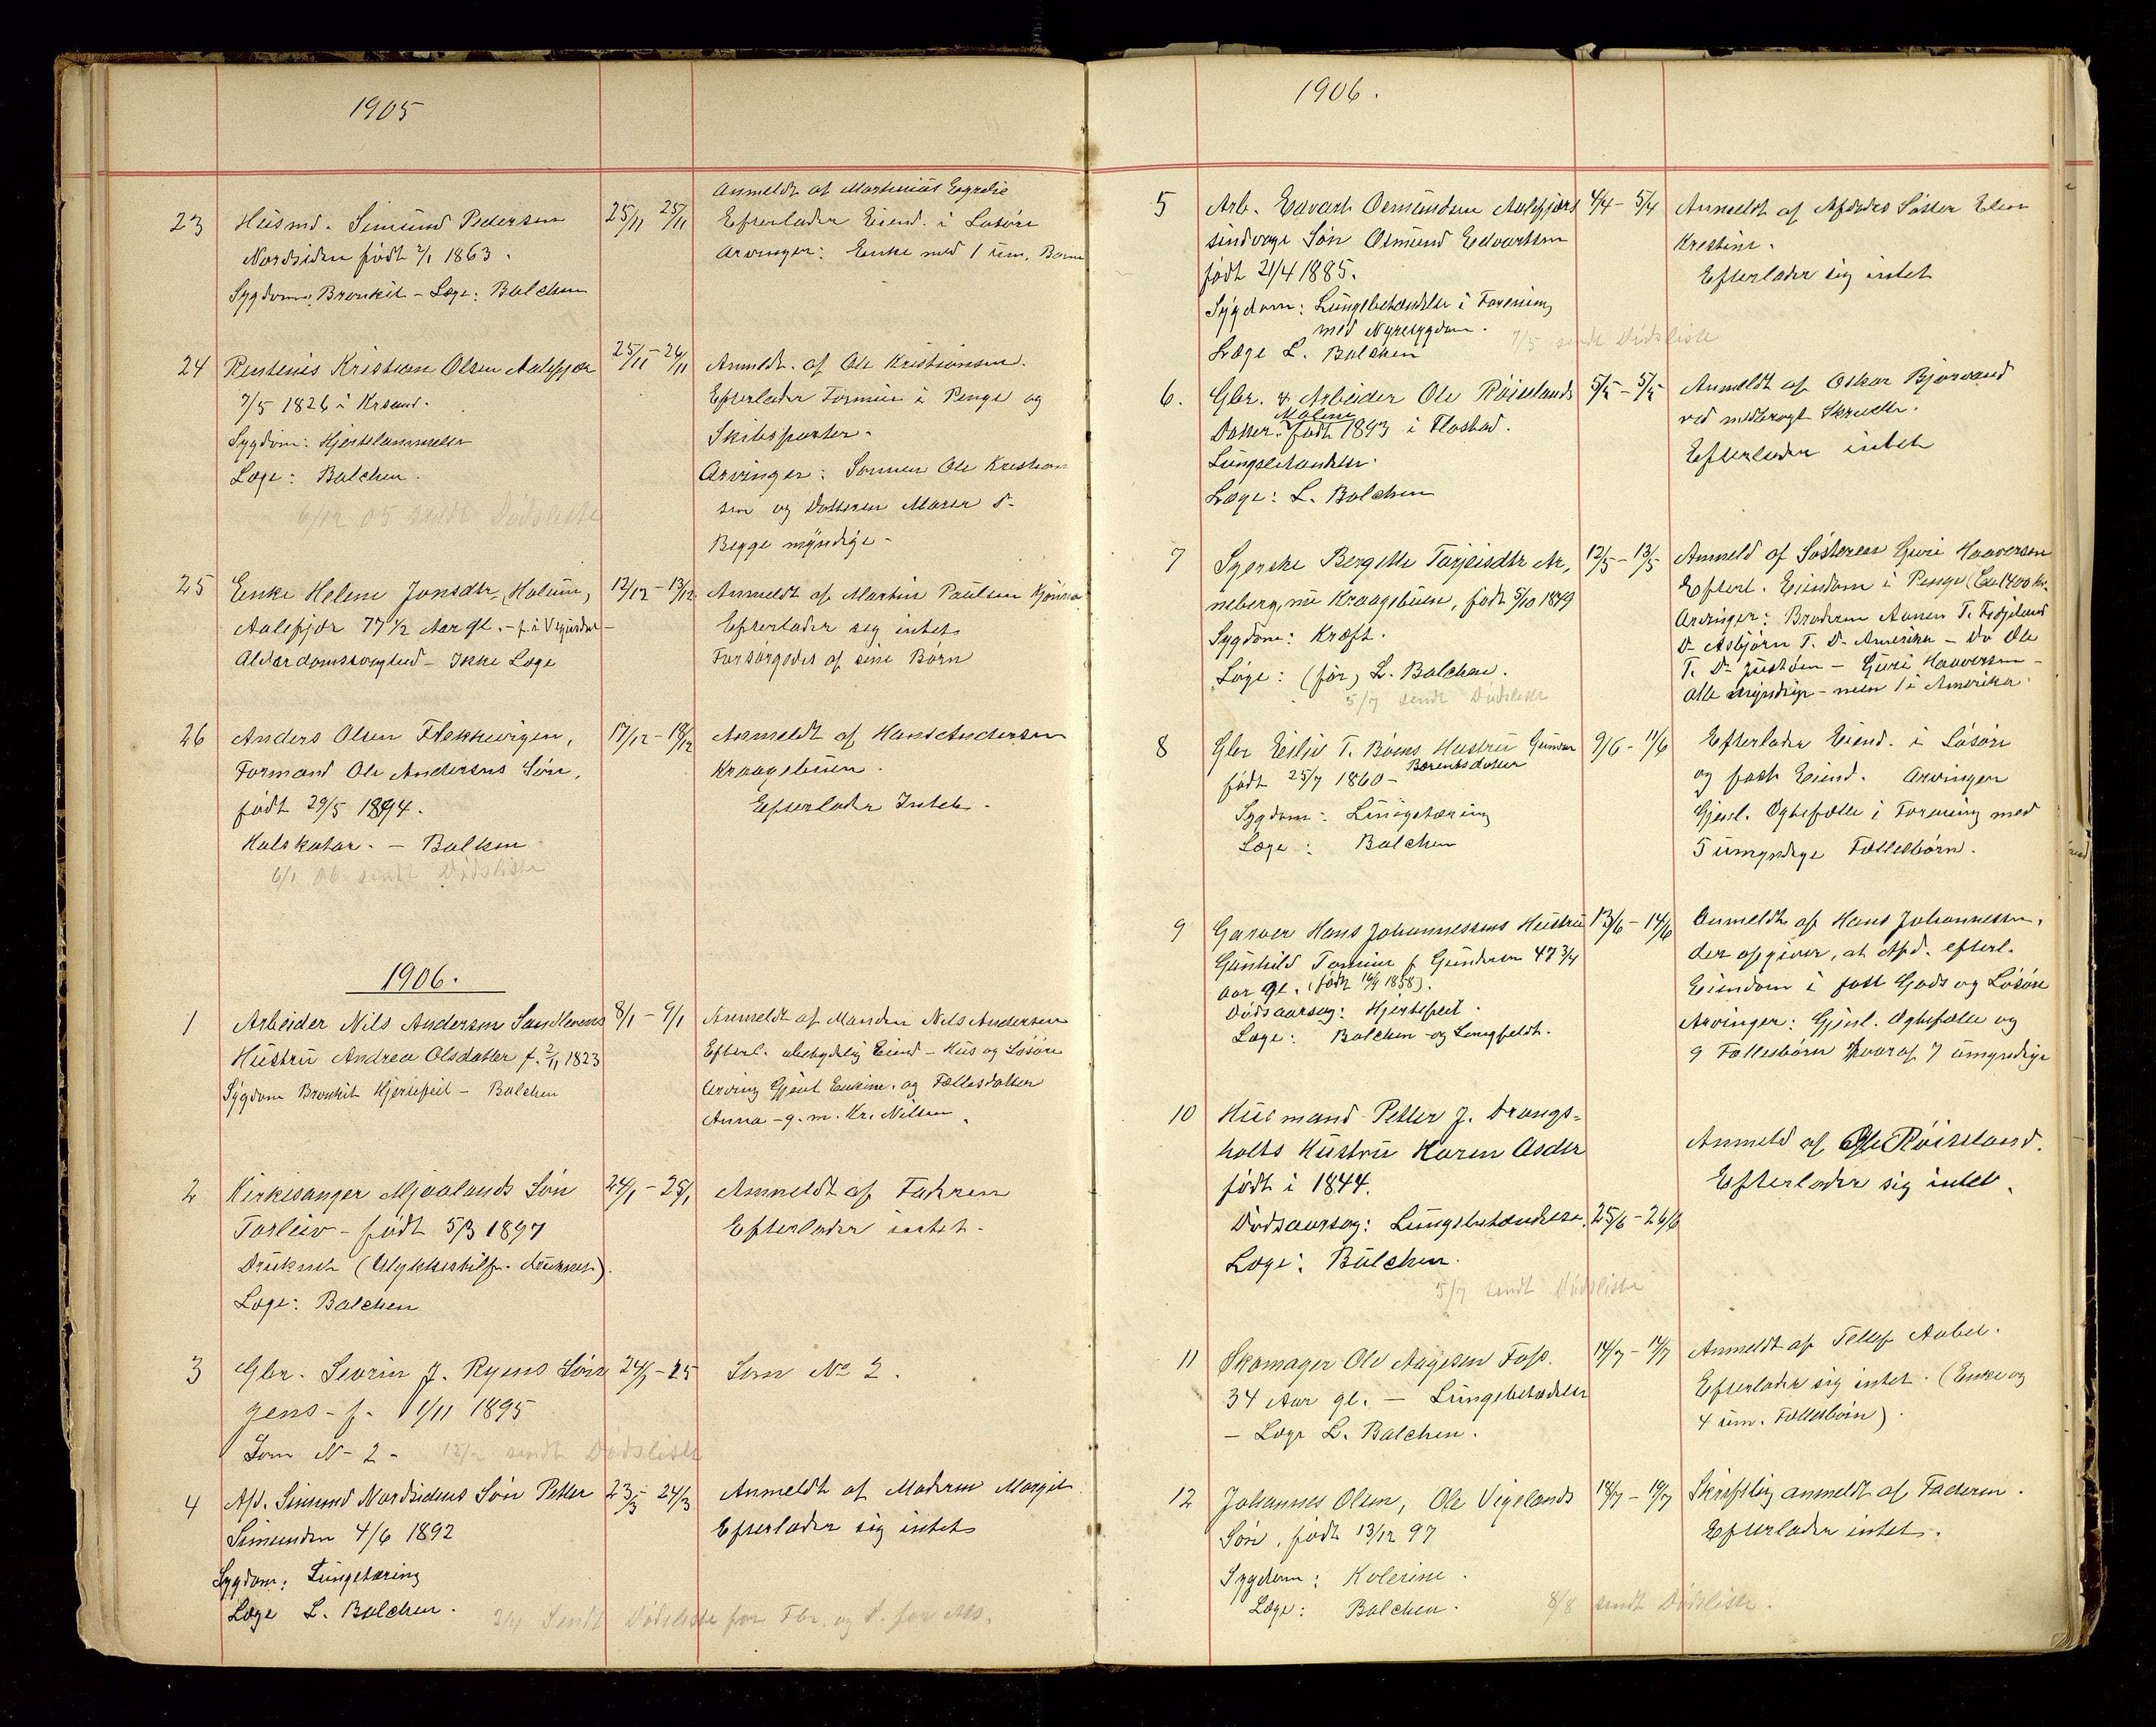 1905
23 Husmd. Simund Pedersen
Nordsiden født 2/1 1863.
Sygdom: Bronkit – Læge: Balchen
25/11 25/11
Anmeldt af Martinius
Efterlader Eiend. i Løsøre
Arvinger: Enke med 1 um. Barn
24 Rentenist Kristian Olsen Aalefjær
7/5 1826 i Krsand.
Sygdom: Hjertelammelse
Læge: Balchen.
6/12 05 sendt Dødsliste
25/11 – 26/11
Anmeldt af Ole Kristiansen.
Efterlader Formue i Penge og
Skibsparter.
Arvinger: Sønnen Ole Kristian
sen og Datteren Maren D–
Begge myndige –
25 Enke Helene Jonsdtr. (Holum)
Aalefjær 77 1/2 Aar gl. –
Alderdomssvaghed – Ikke Læge
12/12 – 13/12
Anmeldt af Martin Paulsen
Efterlader sig intet
Forsørgedes af sine Børn
26 Anders Olsen Flekkevigen,
Formand Ole Andersens Søn,
født 29/5 1894.
Halskatar. – Balken
6/1 06 sendt Dødsliste
17/12 – 18/12
Anmeldt af Hans Andersen
Kraagebuen.
Efterlader Intet –
1906.
1 Arbeider Nils Andersen Sandlevens
Hustru Andrea Olsdatter f. 2/11 1823
Sygdom Bronkit Hjertefeil – Balchen
8/1 – 9/1
Anmeldt af Manden Nils Andersen
Efterl. ubetydelig Eiend – Hus og Løsøre
Arving Gjenl Enkem. og Fællesdatter
Anna – g. m. Kr. Nilsen.
2 Kirkesanger Mjaalands Søn
Torleiv – født 5/3 1897
Druknet (Ulykkestilf. druknet).
Læge: Balchen
24/1 – 25/1
Anmeldt af Faderen
Efterlader intet –
3 Gbr. Severin J. Ryens Søn
Jens – f. 1/11 1895
Som N– 2 – 12/2 sendt Dødsliste
24/1 – 25
Som No 2.
4 Afd. Simund Nordsidens Søn Petter
Simundsen 4/6 1892
Sygdom: Lungetæring
Læge L. Balchen.
3/4 Sendt Dødsliste for Fbr. og D. for Mts.
23/3 – 24/3
Anmeldt af Moderen Margit
Efterlader sig intet
1906.
5 Arb. Edvart Osmundsen Aalefjærs
Søn Osmund Edvartsen
født 21/4 1885.
Sygdom: Lungebetændelse i Forening
med Nyresygdom.
Læge L. Balchen
7/5 sendt Dødsliste
4/4 – 5/4
Anmeldt af Afdødes Søster Elen
Kristine.
Efterlader sig intet
6. Gbr. & Arbeider Ole Røiselands
Datter Malene født 1893 i Flostad.
Lungebetændelse.
Læge: L. Balchen
5/5 – 5/5
Anmeldt af Oskar Bjørvand
ved medbragt Skrivelse.
Efterlader intet
7 Syerske Bergitte Tarjeisdtr Ar,
neberg, nu Kraagebuen, født 5/10 1849
Sygdom: Kræft.
Læge: (før) L. Balchen.
5/7 sendt Dødsliste
12/5 – 13/5
Anmeld af Søsteren Guri Haaversen
Efterl. Eiendom i Penge (Ca 1400 kr.
Arvinger: Broderen Aanen T.
D– Asbjørn T. D– Amerika – Do Ole
T. D– Justøen – Guri Haaversen –
alle myndige – men 1 i Amerika.
8 Gbr Eilif T. Bøens Hustru Gunvor
Berentsdatter
født 25/7 1860 –
Sygdom: Lungetæring
Læge: Balchen
9/6 – 11/6
Efterlader Eiend. i Løsøre
og fast Eiend. Arvinger
Gjenl. Ægtefælle i Forening med
5 umyndige Fællesbørn.
9 Garver Hans Johannessens Hustru
Gunhild Tomine f Gundersen 47 3/4
Aar gl. (født 16/9 1858).
Dødsaarsag: Hjertefeil.
Læge: Balchen og Lengfeldt.
13/6 – 14/6
Anmeldt af Hans Johannessen,
der opgiver, at Afd. efterl.
Eiendom i fast Gods og Løsøre
Arvinger: Gjenl. Ægtefælle og
9 Fællesbørn hvoraf 7 umyndige
10 Husmand Petter J. Drangs=
holts Hustru Karen Asder
født i 1844.
Dødsaarsag: Lungebetændelse.
Læge: Balchen.
5/7 sendt Dødsliste
25/6 – 26/6
Anmeld af Ole Røiseland.
Efterlader sig intet.
11 Skomager Ole Aagesen Foss.
34 Aar gl. – Lungebetædelse
– Læge L. Balchen.
14/7 – 17/7
Anmeldt af Tellef Aabel.
Efterlader sig intet. (Enke og
4 um. Fællesbørn).
12 Johannes Olsen, Ole Vigelands
Søn, født 13/12 97
Sygdom: Kolerine.
Læge: Balchen.
18/7 – 19/7
Skriftlig anmeldt af Faderen.
Efterlader intet.
8/8 sendt Dødsliste.